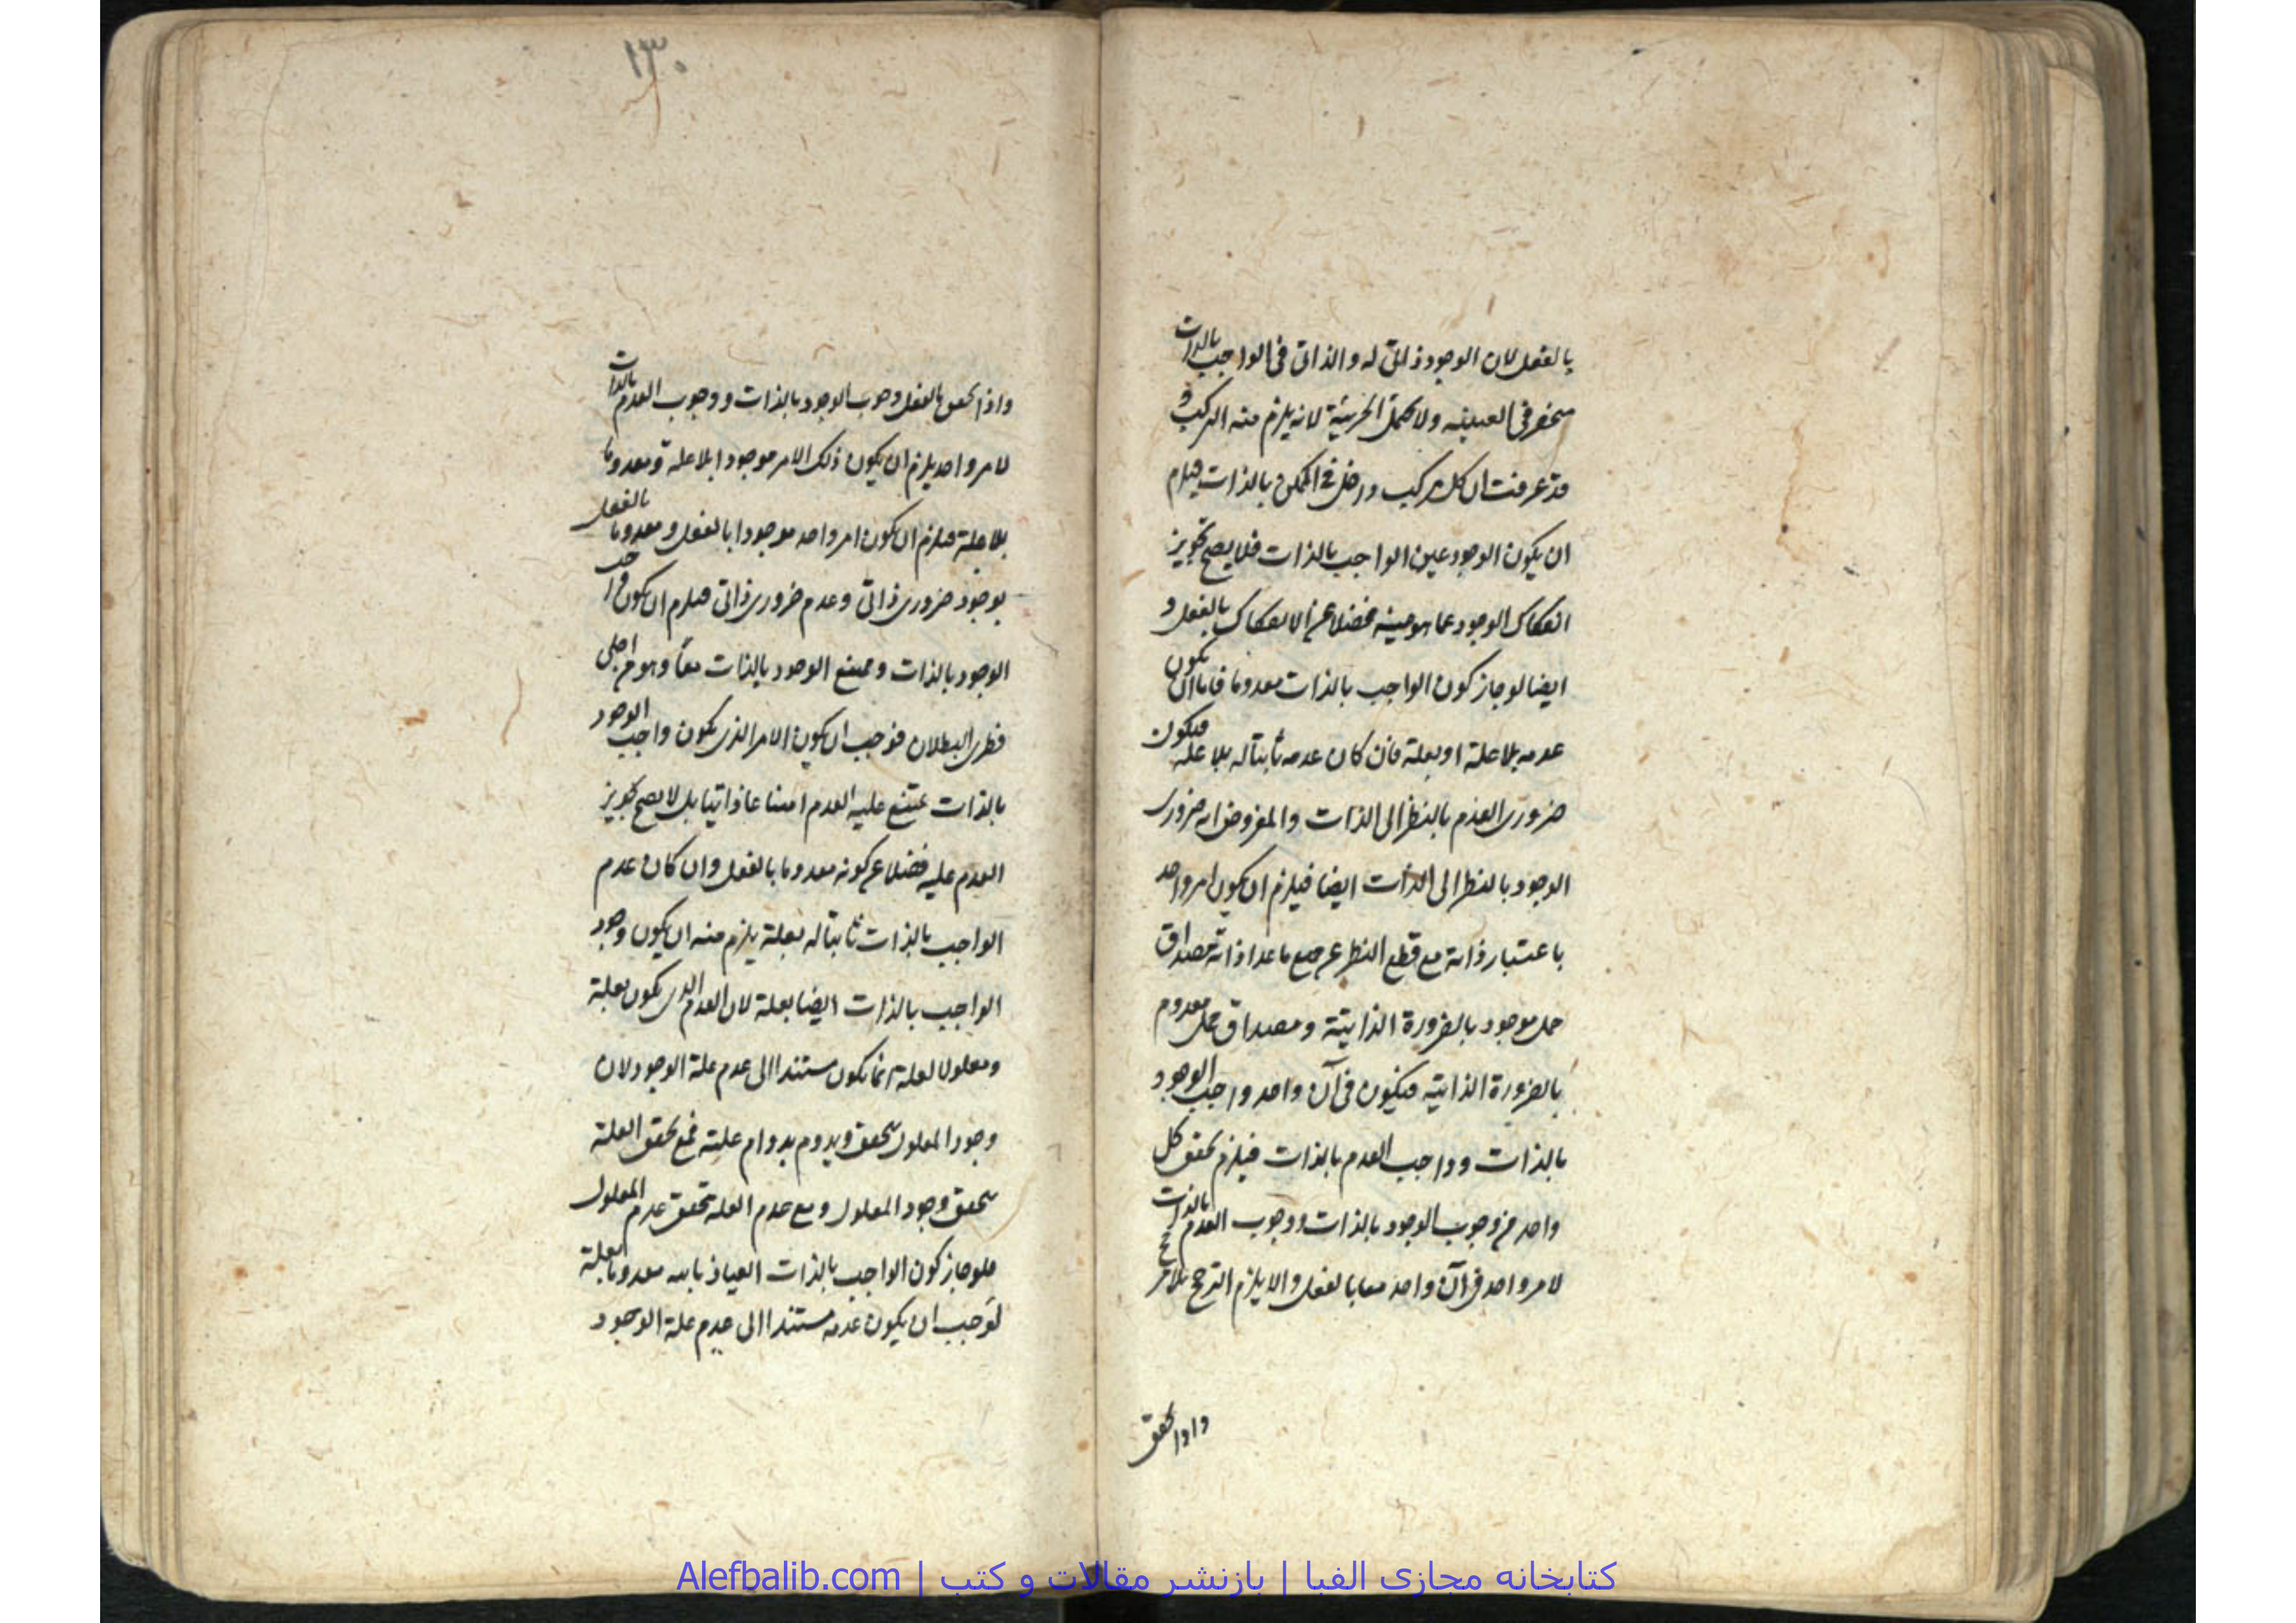 بالفعل لان الوجود ذاتی له والذاتی فی الواجب بالذات
منحصر فی العینیه ولا یحتمل الجزئیة لانه یلزم منه الترکیب و
قد عرفت ان کل مرکب داخل فی الممکن بالذات فیلزم
ان یکون الوجود عین الواجب بالذات فلا یصح تجویز
انفکاک الوجود عما هو عینه فضلا عن الانفکاک بالفعل و
ایضا لو جاز کون الواجب بالذات معدوما فاما ان یکون
عدمه بلا علة او بعلة فان کان عدمه ثابتا له بلا علة فیکون
ضروری العدم بالنظر الی الذات والمفروض انه ضروری
الوجود بالنظر الی الذات ایضا فیلزم ان یکون امر واحد
باعتبار ذاته مع قطع النظر عن جمیع ما عدا ذاته مصداق
حمل موجود بالضرورة الذاتیة ومصداق حمل معدوم
بالضرورة الذاتیة فیکون فی آن واحد واجب الوجود
بالذات وواجب العدم بالذات فیلزم تحقق کل
واحد من وجوب الوجود بالذات ووجوب العدم بالذات
لامر واحد فی آن واحد معا بالفعل والا یلزم الترجیح بلا مرجح
واذا تحقق
۱۳۰
واذا تحقق بالفعل وجوب الوجود بالذات ووجوب العدم بالذات
لامر واحد یلزم ان یکون ذلک الامر موجودا بلا علة ومعدوما
بلا علة فیلزم ان یکون امر واحد موجودا بالفعل ومعدوما بالفعل
بوجود ضروری ذاتی وعدم ضروری ذاتی فیلزم ان یکون واجب
الوجود بالذات وممتنع الوجود بالذات معا وهو من اجلی
فطری البطلان فوجب ان یکون الامر الذی یکون واجب الوجود
بالذات یمتنع علیه العدم امتناعا ذاتیا بل لا یصح تجویز
العدم علیه فضلا عن کونه معدوما بالفعل وان کان عدم
الواجب بالذات ثابتا له بعلة یلزم منه ان یکون وجود
الواجب بالذات ایضا بعلة لان العدم الذی یکون بعلة
ومعلولا لعلة انما یکون مستندا الی عدم علة الوجود لان
وجود المعلول یتحقق ویدوم بدوام علته فمع تحقق العلة
یتحقق وجود المعلول ومع عدم العلة تحقق عدم المعلول
فلو جاز کون الواجب بالذات العیاذ بالله معدوما بعلة
لوجب ان یکون عدمه مستندا الی عدم علة الوجود
کتابخانه مجازی الفبا | بازنشر مقالات و کتب | Alefbalib.com